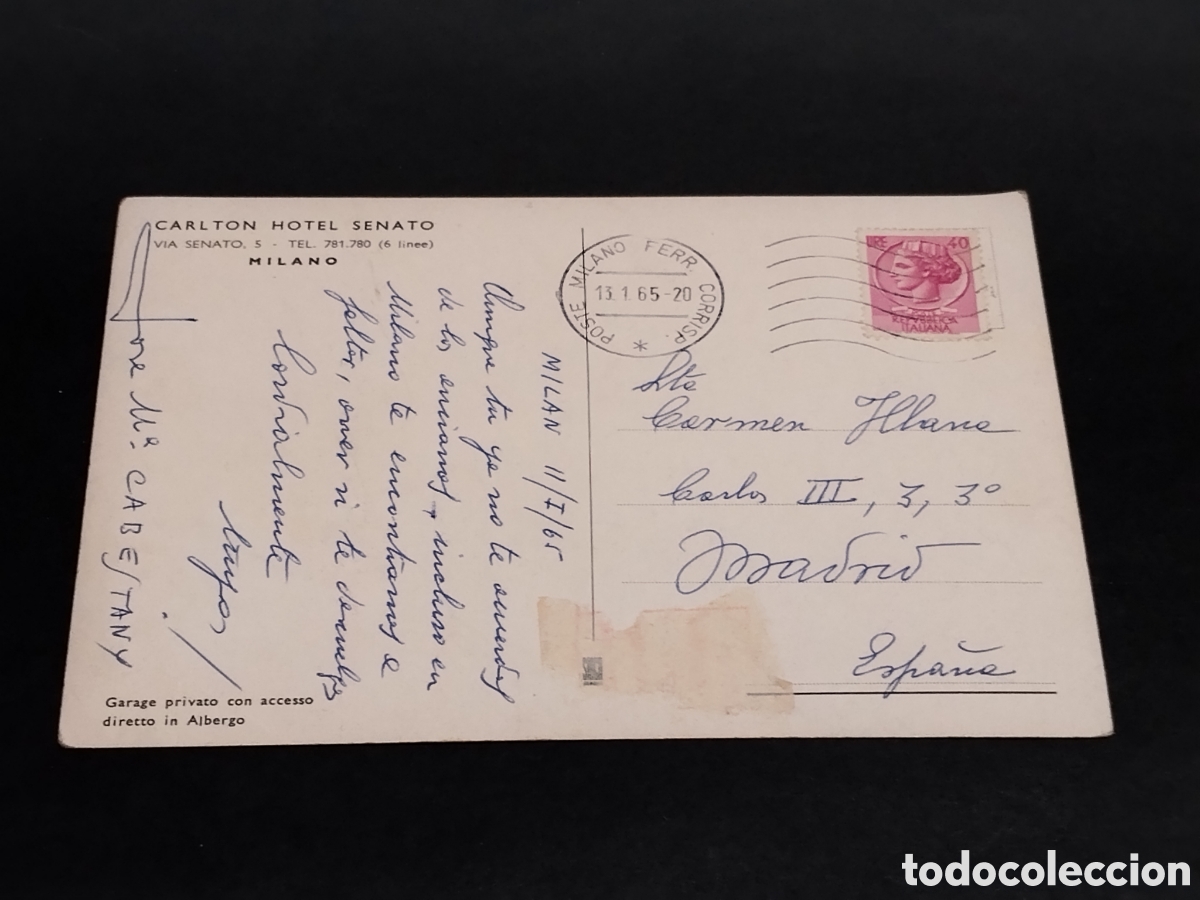 CARLTON HOTEL SENATO
VIA SENATO, 5 - TEL. 781.780 (6 linee)
MILANO
POSTE MILANO FERR. CORRISP. *
13.1.65-20
LIRE 40
REPUBBLICA
ITALIANA
MILAN 11/I/65
Aunque tu ya no te acuerdas
de los ancianos, incluso en
Milano te encontramos a
faltar, a ver si te descuelgas
Cordialmente
José Mª CABESTANY
Srta
Carmen Illana
Carlos III, 3, 3º
Madrid
España
Garage privato con accesso
diretto in Albergo
todocoleccion